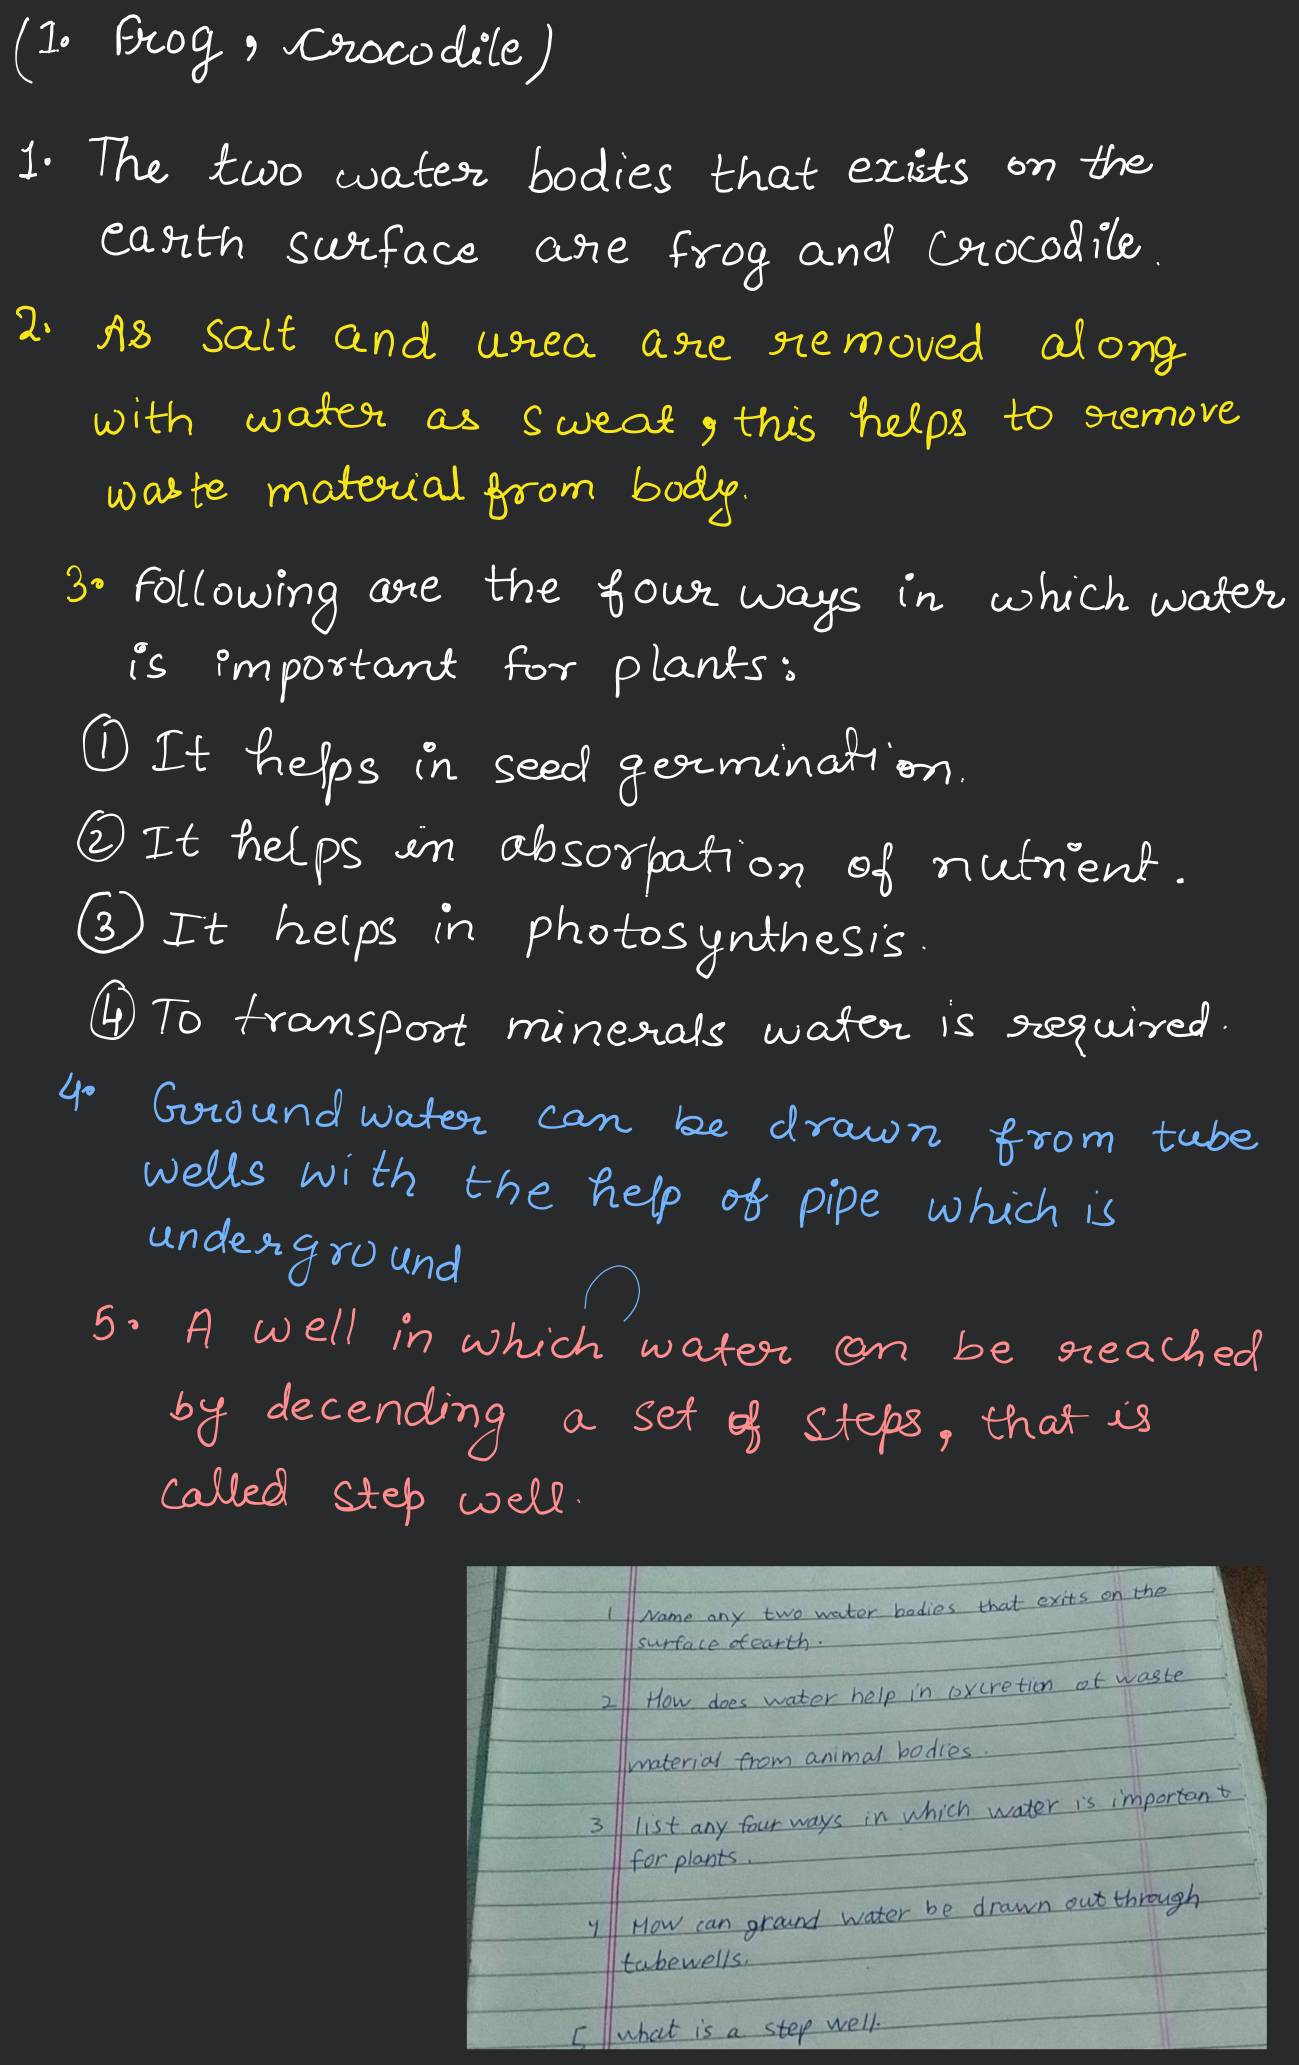 (1. Frog, Crocodile)
1. The two water bodies that exists on the
earth surface are frog and Crocodile.
2. As salt and urea are removed along
with water as sweat, this helps to remove
waste material from body.
3. Following are the four ways in which water
is important for plants:
① It helps in seed germination.
② It helps in absorpation of nutrient.
③ It helps in photosynthesis.
④ To transport minerals water is required.
4. Ground water can be drawn from tube
wells with the help of pipe which is
underground
5. A well in which water can be reached
by decending a set of steps, that is
called step well.
1 Name any two water bodies that exits on the
surface of earth.
2 How does water help in excretion of waste
material from animal bodies.
3 list any four ways in which water is important
for plants.
4 How can graund water be drawn out through
tubewells.
5 what is a step well.